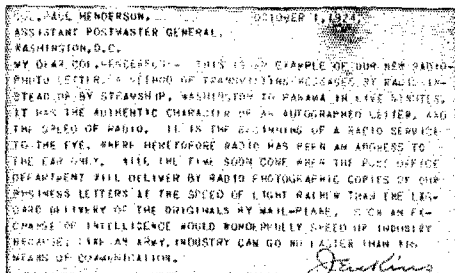 COL. PAUL HENDERSON, OCTOBER 1, 1924
ASSISTANT POSTMASTER GENERAL,
WASHINGTON, D.C.
MY DEAR COL. HENDERSON:- THIS IS AN EXAMPLE OF OUR NEW RADIO-
PHOTO LETTER, A METHOD OF TRANSMITTING MESSAGES BY RADIO IN-
STEAD OF BY STEAMSHIP, WASHINGTON TO PANAMA IN FIVE MINUTES.
IT HAS THE AUTHENTIC CHARACTER OF AN AUTOGRAPHED LETTER, AND
THE SPEED OF RADIO. IT IS THE BEGINNING OF A RADIO SERVICE
TO THE EYE, WHERE HERETOFORE RADIO HAS BEEN AN ADDRESS TO
THE EAR ONLY. WILL THE TIME SOON COME WHEN THE POST OFFICE
DEPARTMENT WILL DELIVER BY RADIO PHOTOGRAPHIC COPIES OF OUR
BUSINESS LETTERS AT THE SPEED OF LIGHT RATHER THAN THE LAG-
GARD DELIVERY OF THE ORIGINALS BY MAIL-PLANE. SUCH AN EX-
CHANGE OF INTELLIGENCE WOULD WONDERFULLY SPEED UP INDUSTRY
BECAUSE, LIKE AN ARMY, INDUSTRY CAN GO NO FASTER THAN ITS
MEANS OF COMMUNICATION.
Jenkins